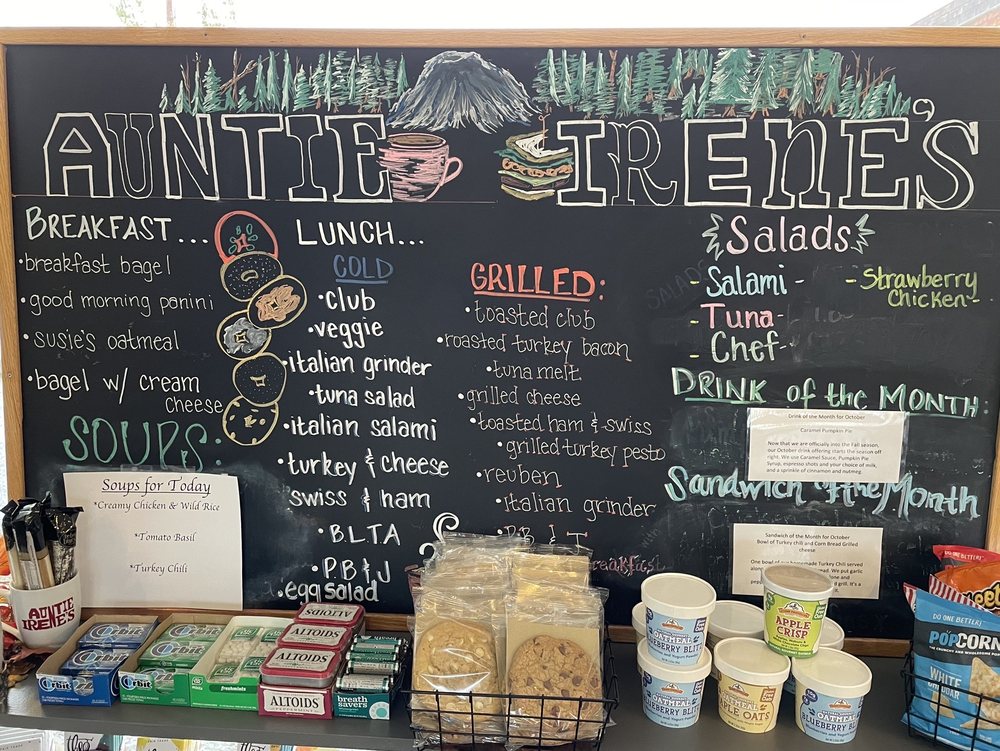 AUNTIE IRENE'S
BREAKFAST...
•breakfast bagel
•good morning panini
•susie's oatmeal
•bagel w/ cream
cheese
SOUPS:
Soups for Today
*Creamy Chicken & Wild Rice
*Tomato Basil
*Turkey Chili
LUNCH...
COLD
•club
•veggie
•italian grinder
•tuna salad
•italian salami
•turkey & cheese
swiss & ham
•BLTA
•PB&J
•egg salad
GRILLED:
•toasted club
•roasted turkey bacon
•tuna melt
•grilled cheese
•toasted ham & swiss
•grilled turkey pesto
•reuben
•italian grinder
Salads
-Salami-
-Tuna-
-Chef-
-Strawberry
Chicken-
SALADS
DRINK of the MONTH:
Drink of the Month for October
Caramel Pumpkin Pie
Now that we are officially into the Fall season,
our October drink offering starts the season off
right. We use Caramel Sauce, Pumpkin Pie
Syrup, espresso shots and your choice of milk,
and a sprinkle of cinnamon and nutmeg.
Sandwich of the Month
Sandwich of the Month for October
Bowl of Turkey chili and Corn Bread Grilled
cheese
One bowl of our homemade Turkey Chili served
AUNTIE
IRENE'S
Orbit
Orbit
freshmints
ALTOIDS
ALTOIDS
ALTOIDS
ALTOIDS
PEPPERMINT
breath
savers
OATMEAL
BLUEBERRY BLITZ
OATMEAL
BLUEBERRY BLITZ
APPLE
CRISP
APPLE OATS
OATMEAL
BLUEBERRY BLITZ
DO ONE BETTER!
POPCORN
WHITE
CHEDDAR